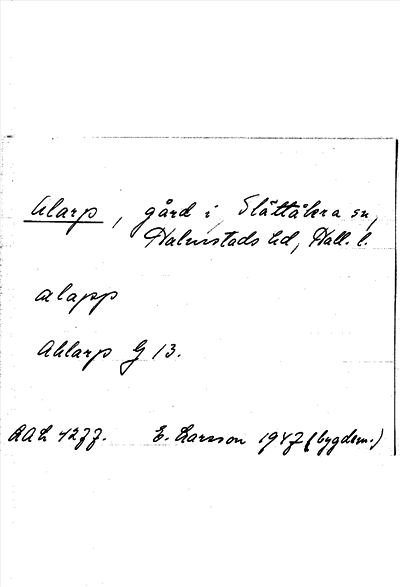 Alarp, gård i Slättåkra sn,
Halmstads hd, Hall. l.
alapp
Ahlarp G 13.
AAL 4277. E. Larsson 1947 (bygdem.)